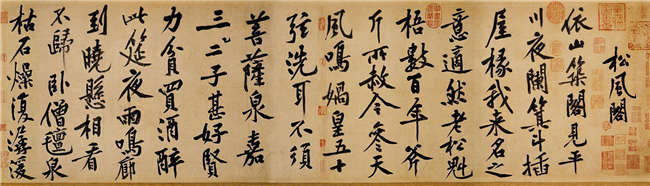 松風閣
依山築閣見平
川夜闌箕斗插
屋椽我來名之
意適然老松魁
梧數百年斧
斤所赦今參天
風鳴媧皇五十
弦洗耳不須
菩薩泉嘉
三二子甚好賢
力貧買酒醉
此筵夜雨鳴廊
到曉懸相看
不歸臥僧氊泉
枯石燥復潺湲